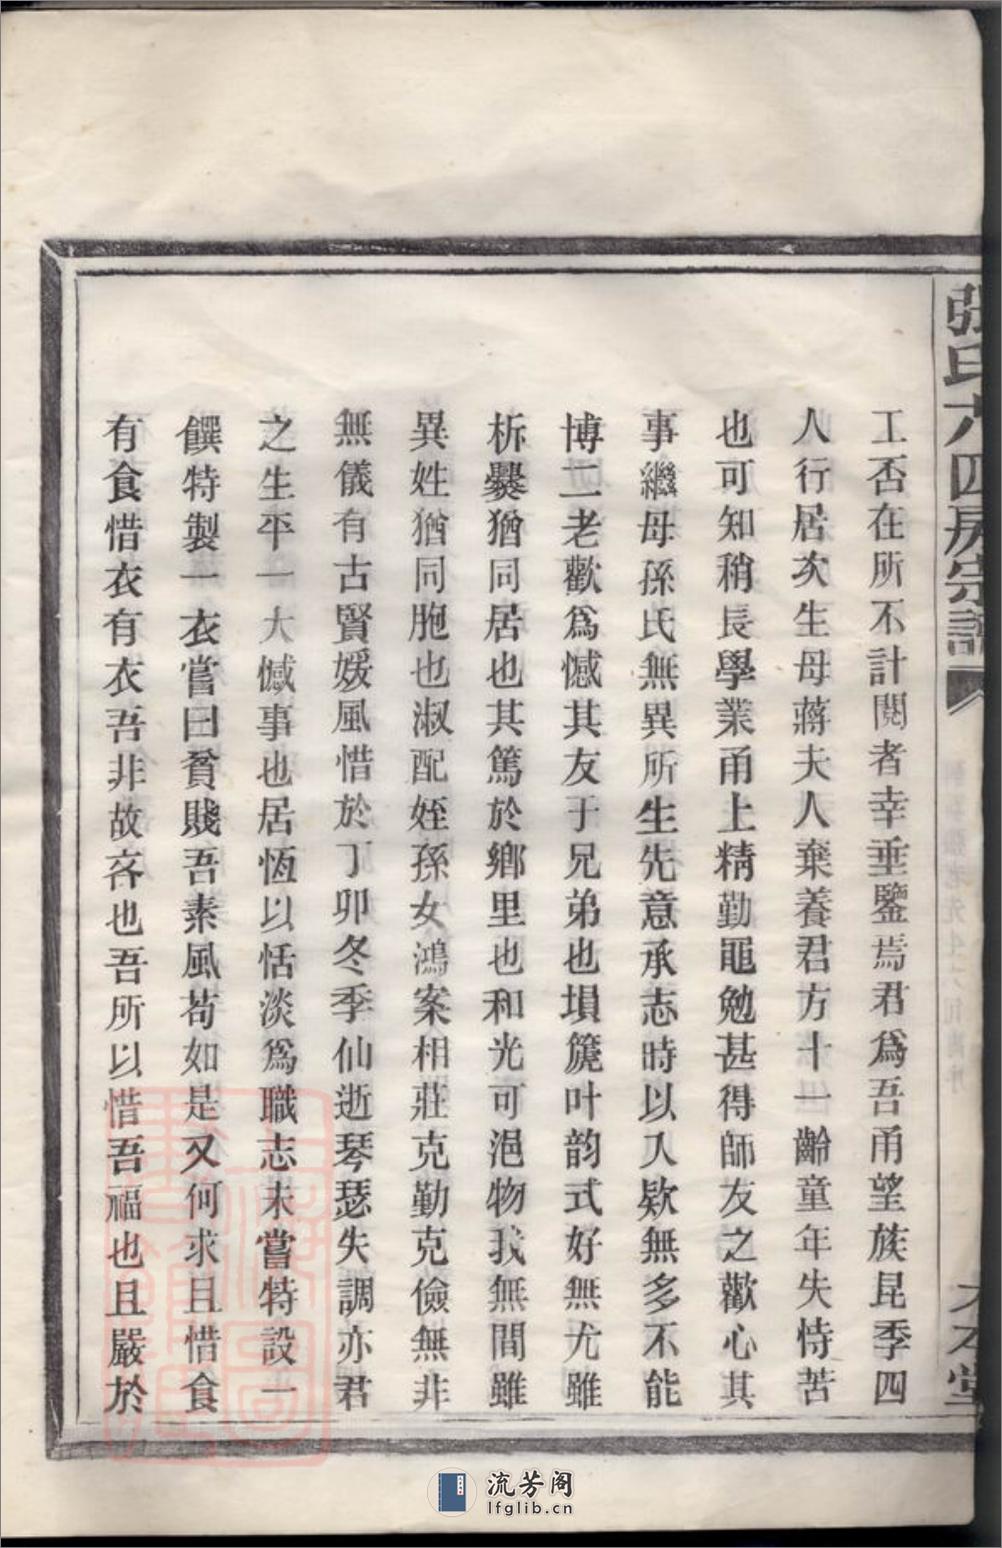 張氏六四房宗譜
大本堂
工否在所不計閱者幸垂鑒焉君爲吾甬望族昆季四
人行居次生母蔣夫人棄養君方十一齡童年失恃苦
也可知稍長學業甬上精勤黽勉甚得師友之歡心其
事繼母孫氏無異所生先意承志時以入欵無多不能
博二老歡爲憾其友于兄弟也塤篪叶韵式好無尤雖
析爨猶同居也其篤於鄉里也和光可浥物我無間雖
異姓猶同胞也淑配姪孫女鴻案相莊克勤克儉無非
無儀有古賢媛風惜於丁卯冬季仙逝琴瑟失調亦君
之生平一大憾事也居恆以恬淡爲職志未嘗特設一
饌特製一衣嘗曰貧賤吾素風苟如是又何求且惜食
有食惜衣有衣吾非故吝也吾所以惜吾福也且嚴於
流芳阁
lfglib.cn